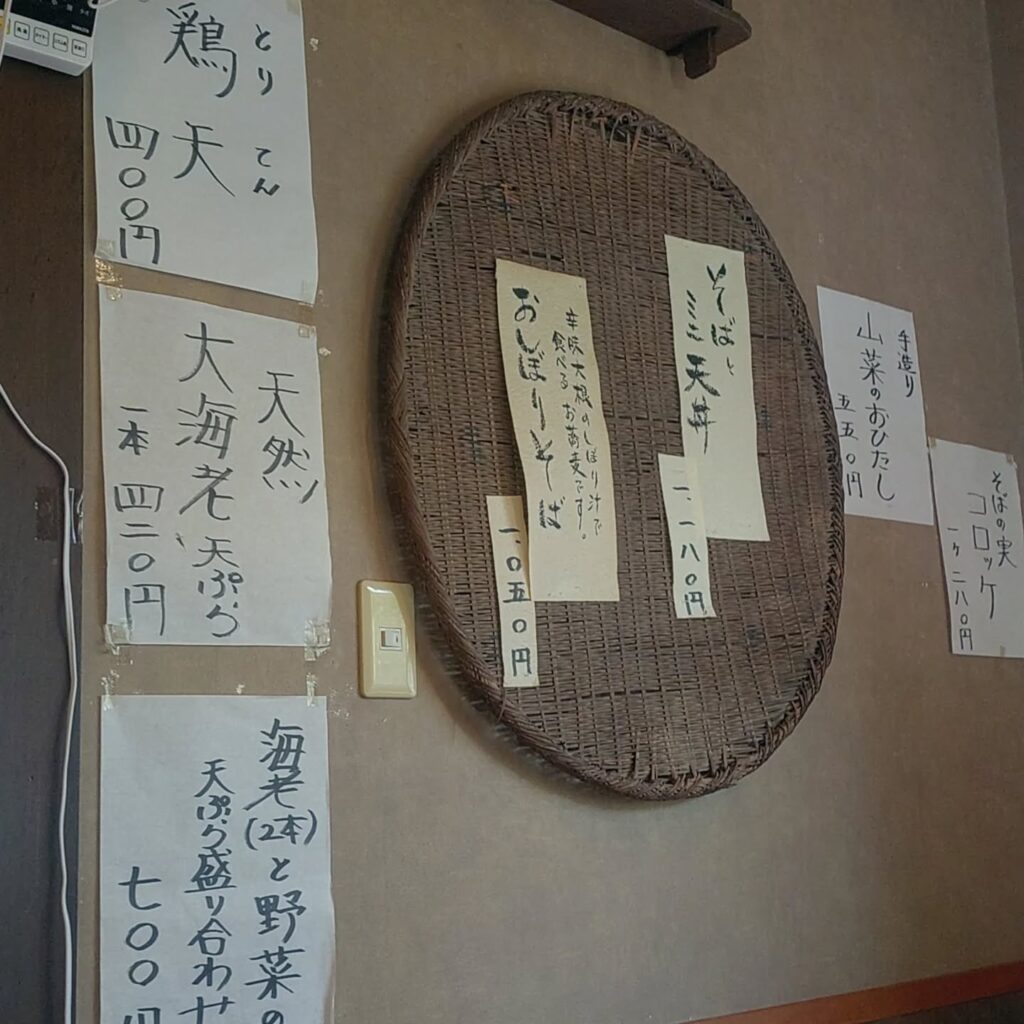 とり てん
鶏天
四〇〇円
天然
大海老天ぷら
一本 四二〇円
海老(2本)と野菜の
天ぷら盛り合わせ
七〇〇円
そばと
ミニ天丼
一、一八〇円
辛味大根のしぼり汁で
食べるお蕎麦です。
おしぼりそば
一、〇五〇円
手造り
山菜のおひたし
五五〇円
そばの実
コロッケ
一ケ 二八〇円